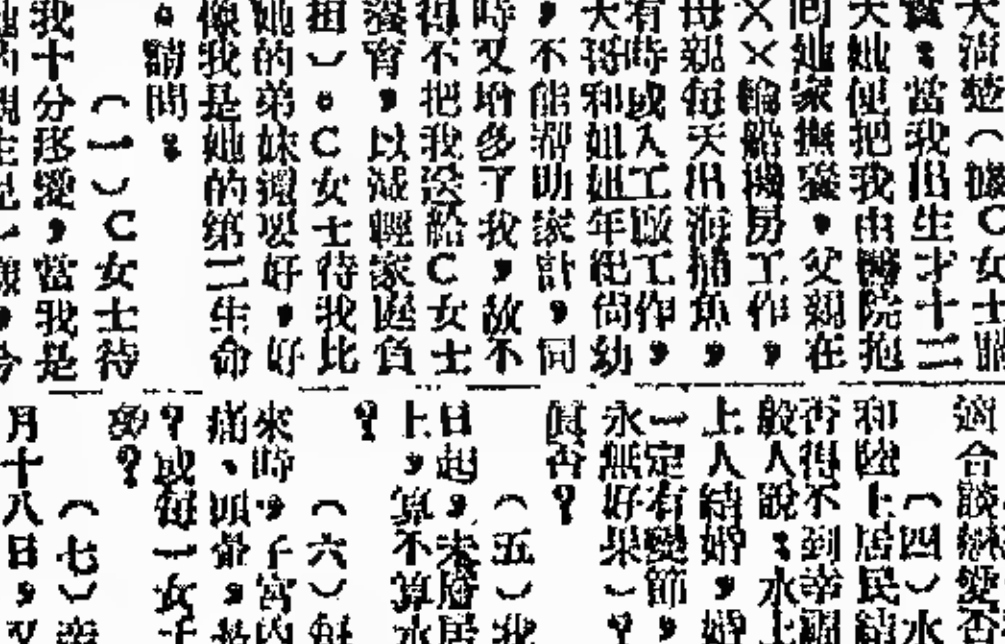 天清楚（據C女士照
實：當我出生才十二
天她便把我由醫院抱
回她家撫養，父親在
××輪船機房工作，
母親每天出海捕魚，
有時或入工廠工作，
大哥和姐姐年紀尚幼
，不能帮助家計，同
時又增多了我，故不
得不把我送給C女士
養育，以减輕家庭負
担）。C女士待我比
她的弟妹還要好，好
像我是她的第二生命
。請問：
（一）C女士待
我十分疼愛，當我是
適合談戀愛否
（四）水
和陸上居民結
否得不到幸福
般人說：水上
上人結婚，婚
一定有變節，
永無好果）？
眞否？
（五）我
日起，未曆居
上，算不算水
？
（六）每
來時，子宮內
痛、頭骨，
？或每一女子
勞？
（七）
月十八日，又